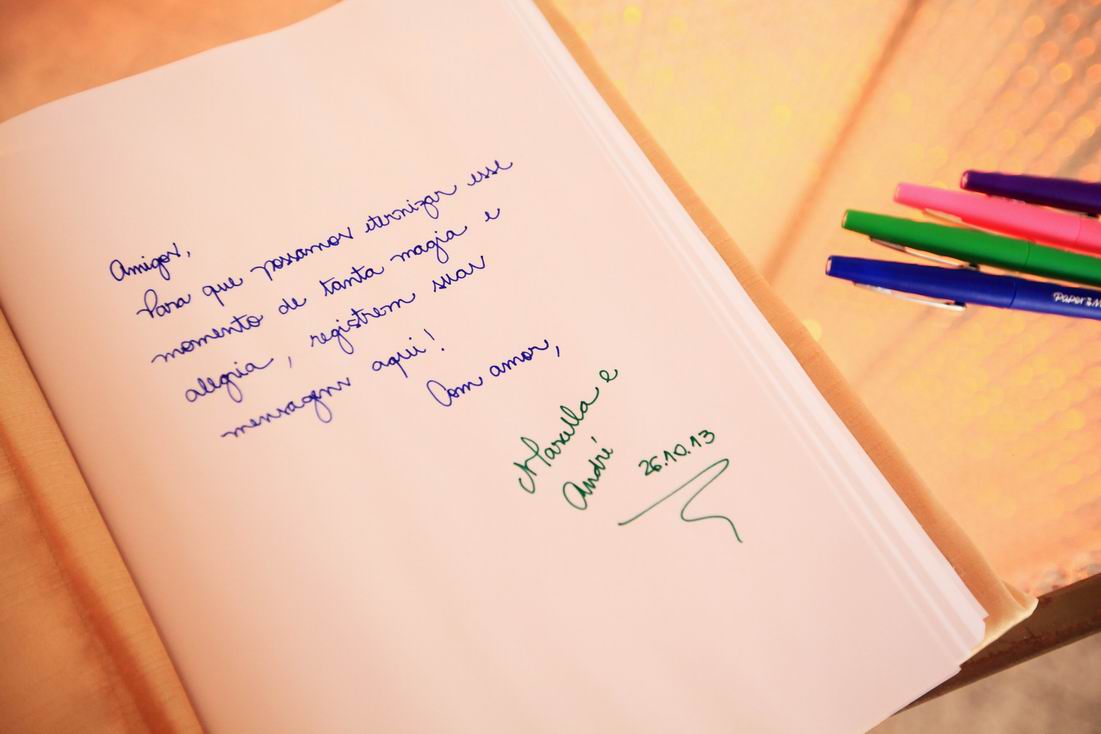 Amigos,
Para que possamos eternizar esse
momento de tanta magia e
alegria, registrem suas
mensagens aqui!
Com amor,
Marella e
André
26.10.13